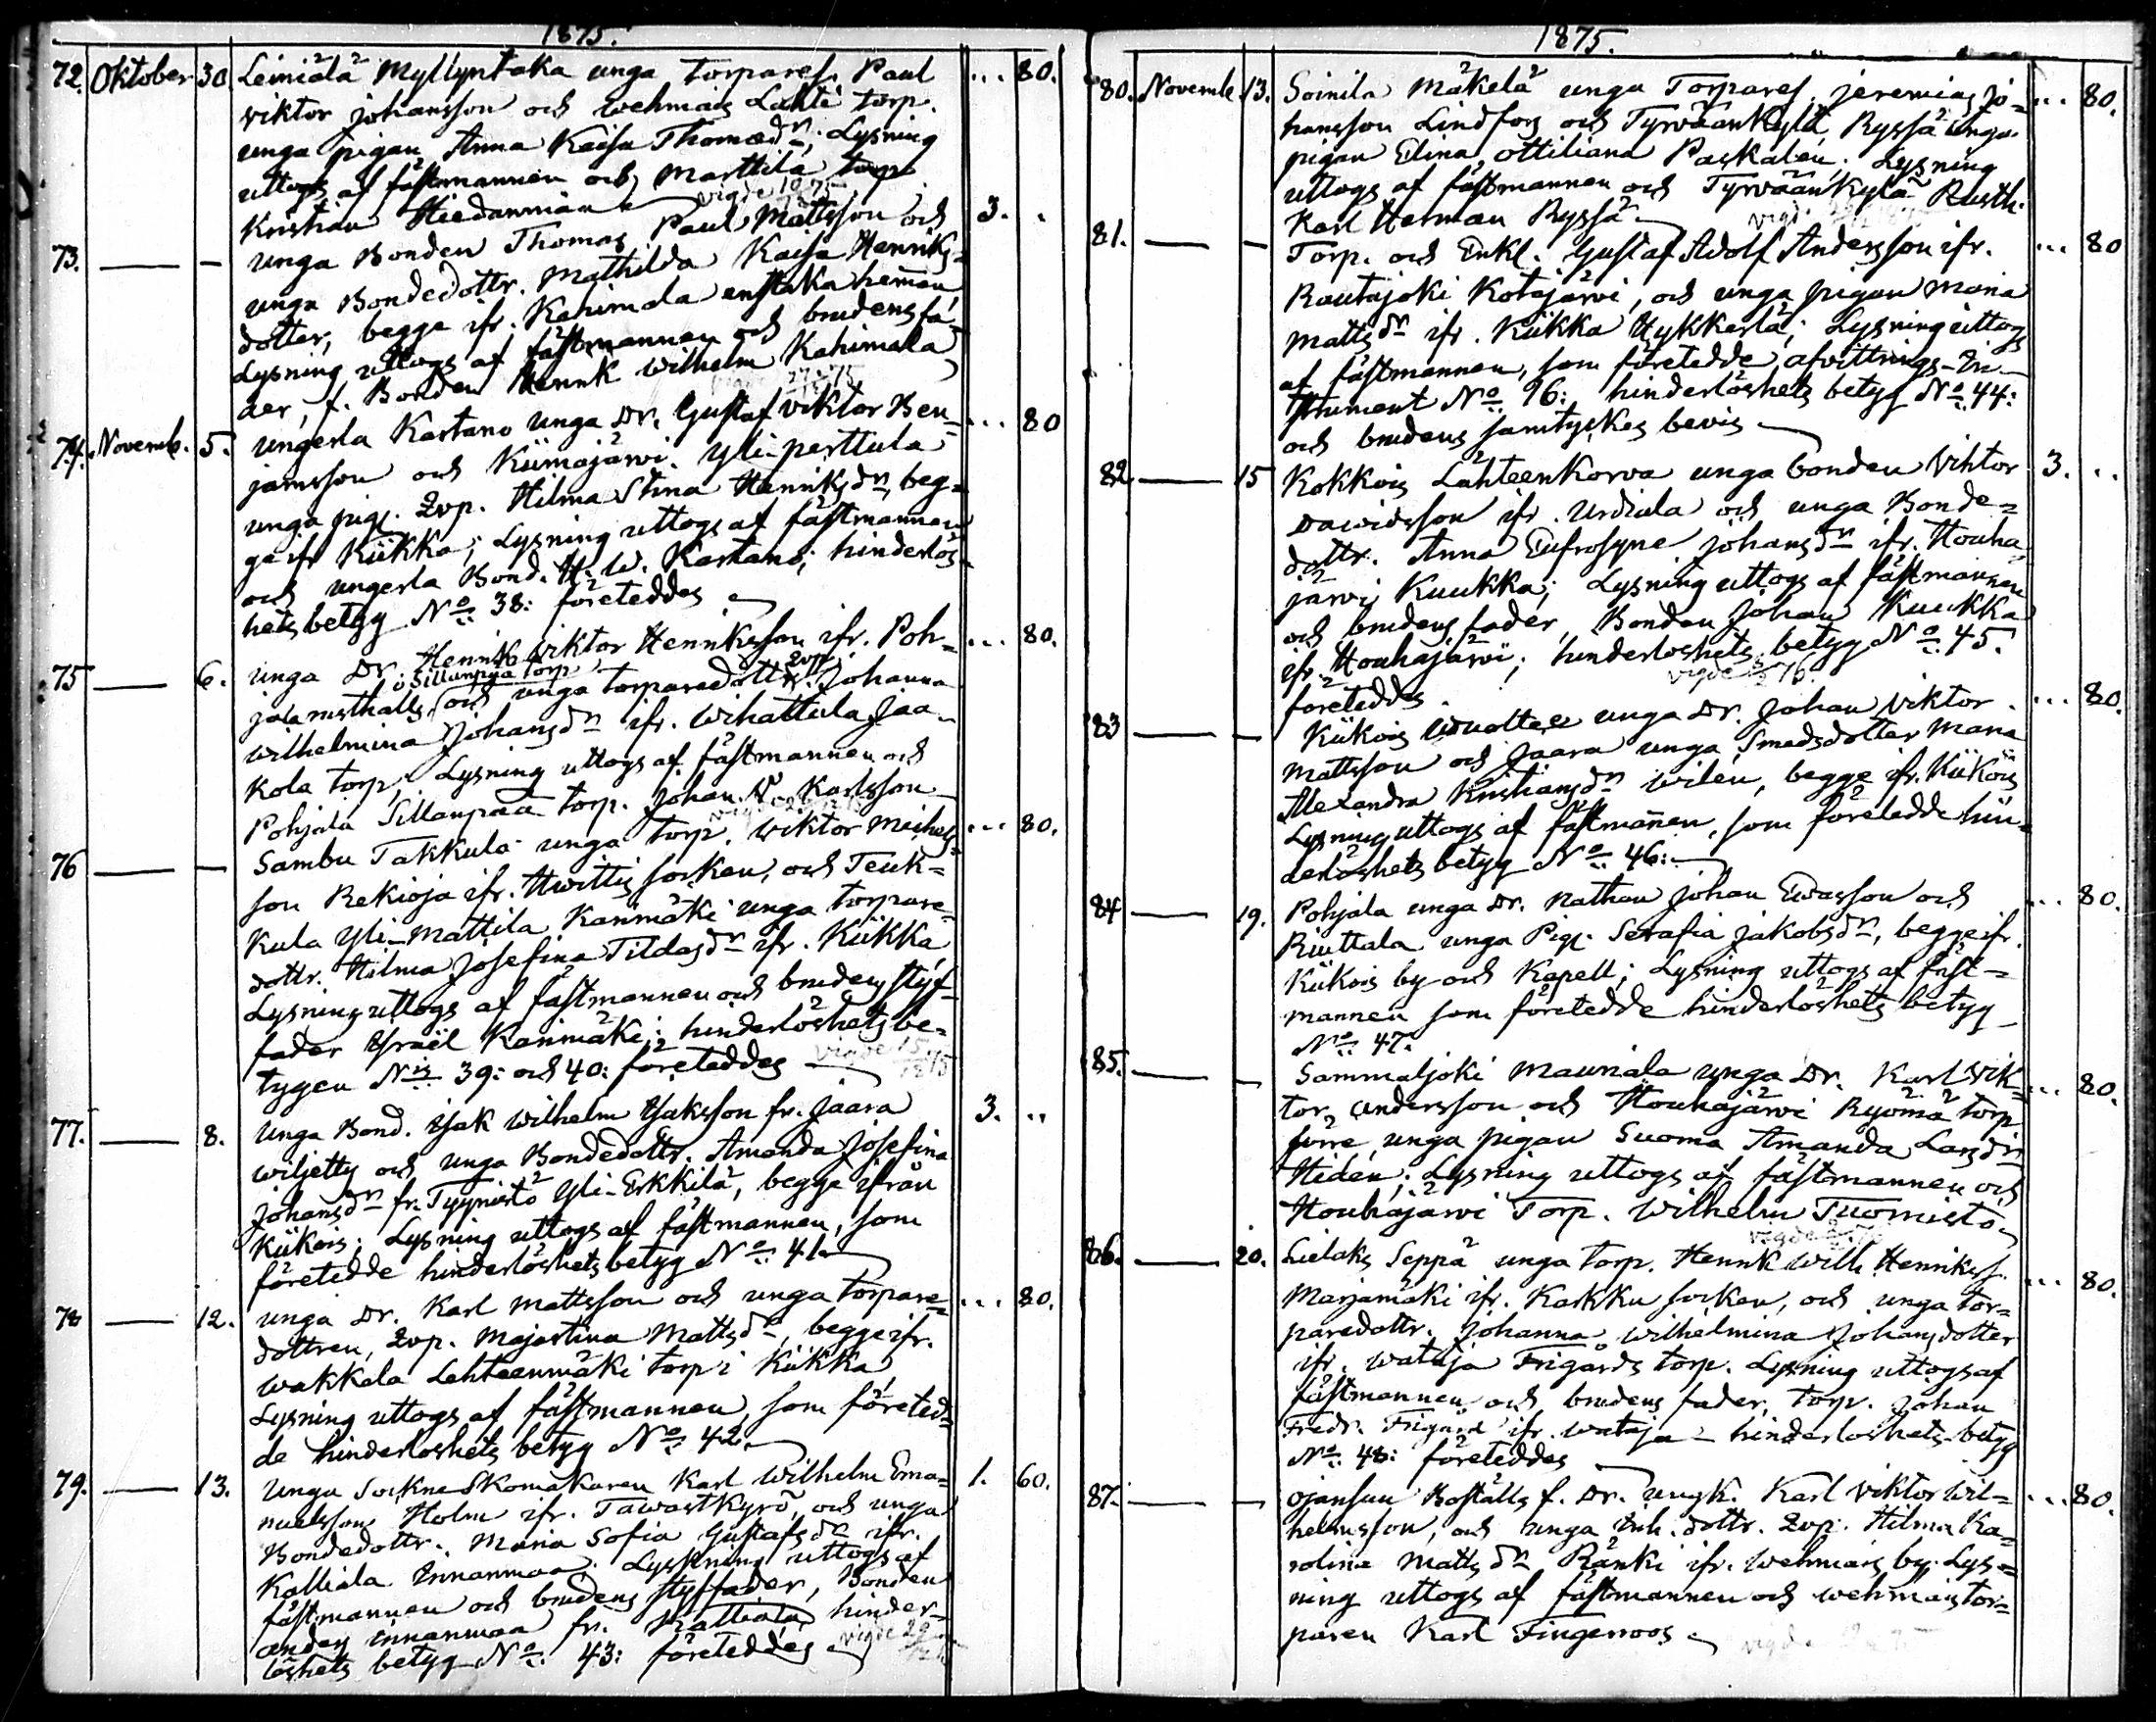 1875.
72. Oktober 30 Leiniälä Myllyntaka unga torpares. Paul ... 80.
viktor johansson och wehmais Lahti torp.
unga pigan Anna Kaisa Thomædr; Lysning
uttogs af fästmannen och Marttila torp
Kristian Hiedanmiän vigde
73. — — unga Bonden Thomas Paul Mattsson och 3. .
unga Bondedottr. Mathilda Kaisa Henriks=
dotter, begge ifr. Kahimala enstaka hemman
Lysning uttogs af fästmannen och brudens fa-
der, f. Bonden Henrik Wilhelm Kahimala
74. Novemb. 5. ungerla Kartano unga Dr. Gustaf viktor Ben- ... 80
jamsson och Kiimajärvi Yli-perttula
unga pig. Zvp. Hilma Stina Henriksdr, beg=
ge ifr Kiikka; Lysning uttogs af fästmannen
och ungerla Bond. H. W. Kartano; hinderlös-
hets betyg No 38: företeddes
75 — 6. unga Dr. Henrik viktor Henriksson ifr. Poh- ... 80.
jala rusthålls i Sillanpää torp och unga torparedottr. zvp. Johanna
wilhelmina Johansdr ifr. Wihattula Jaa-
kola torp; Lysning uttogs af fästmannen och
Pohjala Sillanpää torp. Johan Karlsson
76 — — Sambu Takkula unga torp. Wiktor Michels= ... 80.
son Rekioja ifr. Hvittis socken, och Teuk=
kula Yli-Mattila Kanmäki unga torpare-
dottr. Hilma Josefina Tildasdr ifr. Kiikka
Lysning uttogs af fästmannen och brudens styf-
fader Israël Kanimäki; hinderlöshets be-
tygen Nis 39: och 40: företeddes vigde 15/12 75
77. — 8. unga Bond. Isak Wilhelm Isaksson fr. Jaara 3. ..
wiljetty och unga Bondedottr. Amanda Josefina
Johansdr fr. Tyynistö Yli-Erkkilä, begge ifrån
Kiikois; Lysning uttogs af fästmannen, som
företedde hinderlöshets betyg No 41.
78 — 12. unga Dr. Karl Mattsson och unga torpare= ... 80.
dottren, Zvp. Majastina Mattsdr, begge ifr.
Wakkala Lehteenmäki torp i Kiikka,
Lysning uttogs af fästmannen, som företed=
de hinderlöshets betyg No 42.
79. — 13. Unga Sockne Skomakaren Karl Wilhelm Ema= 1. 60.
nuelsson Holm ifr. Tawastkyrö, och unga
Bondedottr. Maria Sofia Gustafsdr ifr.
Kalliala Innanmaa; Lysning uttogs af
fästmannen och brudens styffader, Bonden
Anders Innanmaa fr. Kalliala, hinder-
löshets betyg No 43: företeddes vigde 29/12
1875.
80. Novemb. 13. Soinila Mäkelä unga Torpares. jeremias jo= ... 80.
hansson Lindfors och Tyrväänkylä Ryssä unga
pigan Elina Ottiliana Paskalén; Lysning
uttogs af fästmannen och Tyrväänkylä Rusth.
Karl Herman Ryssä. vigd.
81. — — Torp. och Enkl. Gustaf Adolf Andersson ifr. ... 80
Rautajoki Kotajärvi, och unga pigan Maria
Mattsdr ifr. Kiikka Hykkerlä; Lysning uttogs
af fästmannen, som företedde afvittrings-in-
strument No 96: hinderlöshets betyg No 44:
och brudens samtyckes bevis
82 — 15 Kokkois Lähteenkorva unga bonden Viktor 3. ..
Dawidsson ifr. Urdiala och unga Bonde=
dottr. Anna Eufrosyne Johansdr ifr. Houha-
järvi Kuukka; Lysning uttogs af fästmannen
och brudens fader, Bonden Johan Kuukka
ifr. Houhajärvi; hinderlöshets betyg No 45.
företeddes. vigde 76.
83 — — Kiikois unga Dr. Johan Viktor ... 80.
Mattsson och Jaara unga Smedsdotter Maria
Alexandra Kristiansdr Wilén, begge ifr. Kiikois
Lysning uttogs af fästmannen, som företedde hin-
derlöshets betyg No 46:
84 — 19. Pohjala unga Dr. Nathan Johan Ewasson och ... 80.
Ruuttala unga Pig. Serafia Jakobsdr, begge ifr.
Kiikois by och Kapell; Lysning uttogs af fäst-
mannen som företedde hinderlöshets betyg
No 47.
85. — — Sammaljoki Mauriala unga Dr. Karl Vik- ... 80.
tor Andersson och Houhajärvi Ryömä torp
unga pigan Suoma Amanda Larsdr
Hidén; Lysning uttogs af fästmannen och
Houhajärvi Torp. Wilhelm Tuomisto
vigde
86. — 20. Lielaks Seppä unga torp. Henrik Wilh. Henrikss. ... 80.
Marjamäki ifr. Karkku socken, och unga tor=
paredottr. Johanna Wilhelmina Johansdotter
ifr. Wataja Frigårds torp. Lysning uttogs af
fästmannen och brudens fader, torp. Johan
Fredr. Frigård ifr. Wataja – hinderlöshets betyg
No 48: företeddes
87. — — Ojansuu Boställs f. Dr. ungk. Karl Viktor Wil= ... 80.
helmsson, och unga inh. dottr. Zvp. Hilma Ka=
rolina Mattsdr Ränki ifr. Wehmais by. Lys=
ning uttogs af fästmannen och Wehmais tor=
paren Karl Fingerroos
vigd.